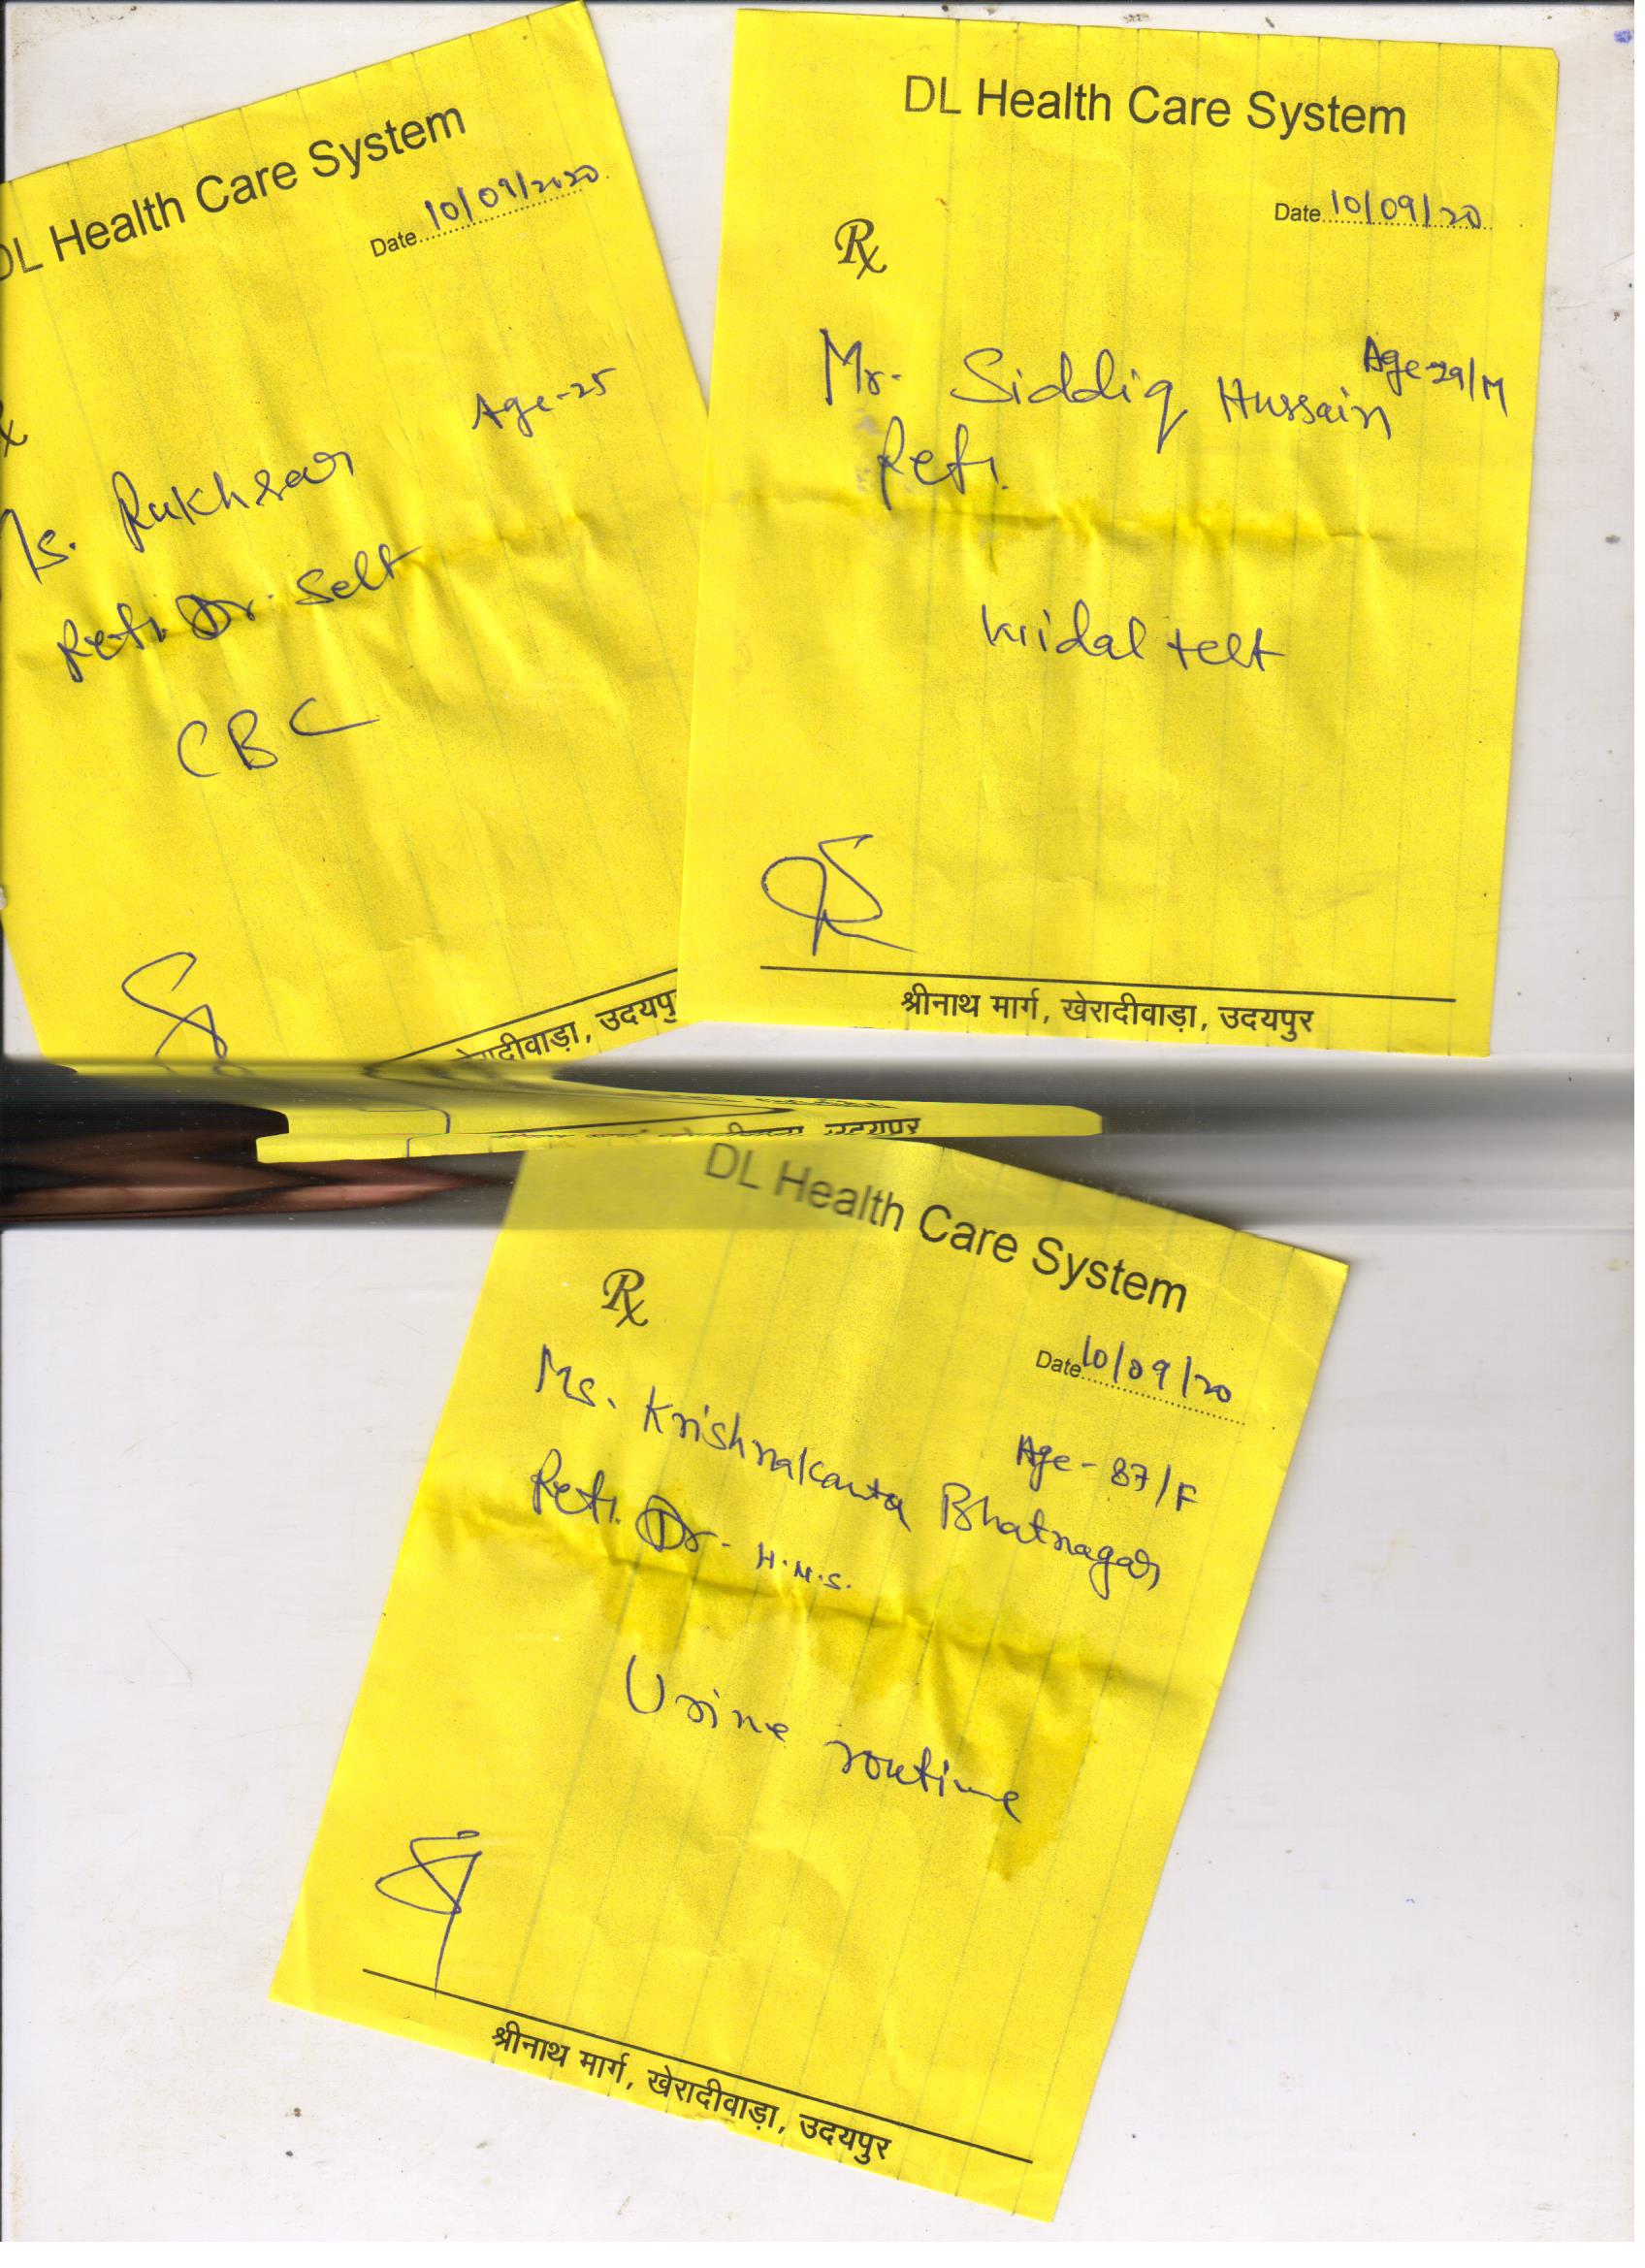 DL Health Care System
Date 10/09/2020
Age-25
Ms. Rukhsar
Ref. Dr. Self
CBC
खेरादीवाड़ा, उदयपु
DL Health Care System
Date 10/09/20
Rx
Age-29/M
Mr. Siddiq Hussain
Ref.
Widal test
श्रीनाथ मार्ग, खेरादीवाड़ा, उदयपुर
उदयपुर
DL Health Care System
Rx
Date 10/09/20
Age-87/F
Ms. Krishnakanta Bhatnagar
Ref. Dr- H.M.S.
Urine routine
श्रीनाथ मार्ग, खेरादीवाड़ा, उदयपुर